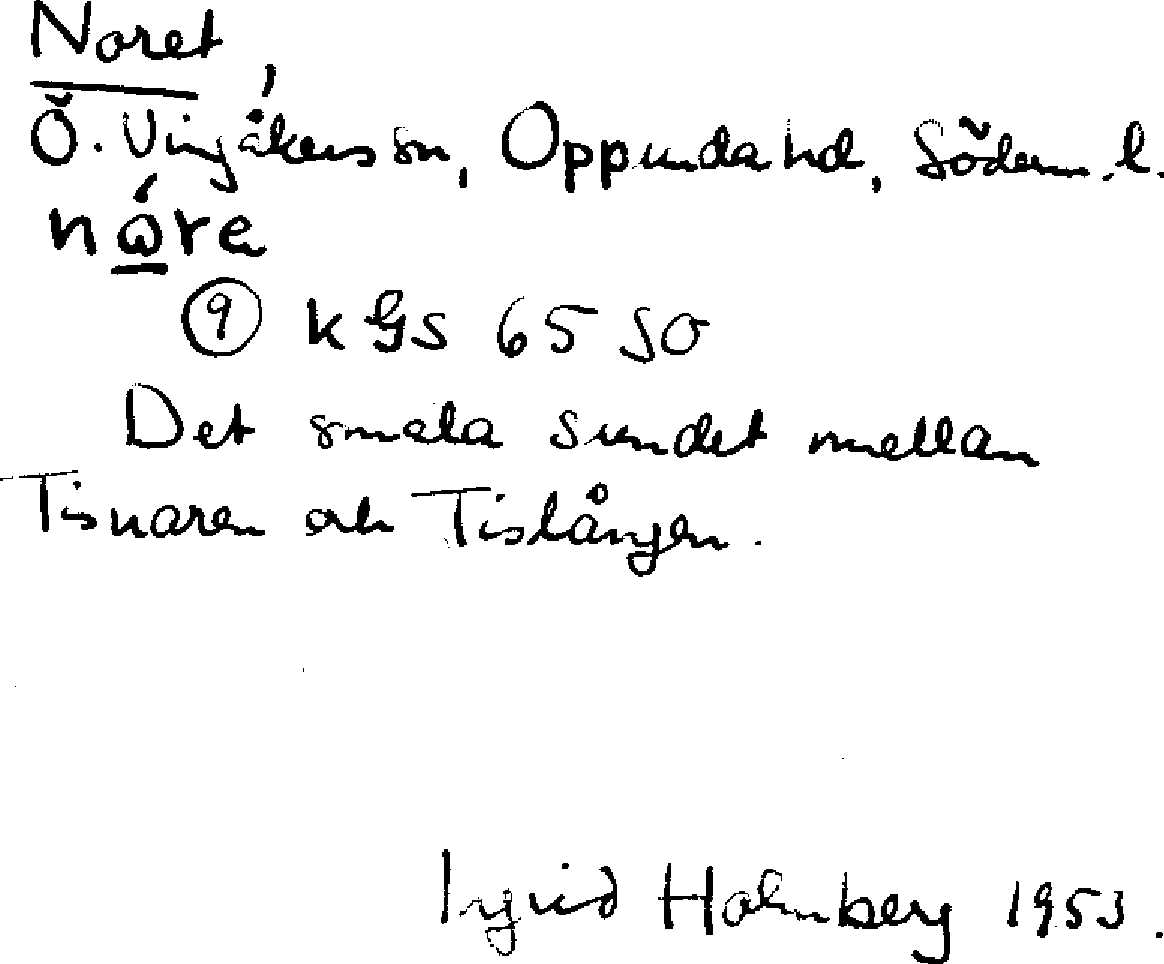 Noret,
Ö. Vingåkers sn, Oppunda hd, Söderm. l.
nǫ́re
⑨ k GS 65 SO
Det smala sundet mellan
Tisnaren och Tislången.
Ingrid Holmberg 1953.